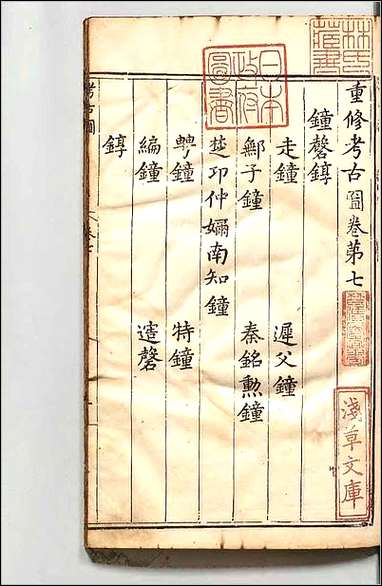 重修考古圖卷第七
鐘磬錞
走鐘 遲父鐘
鄦子鐘 秦銘勲鐘
楚卭仲嬭南知鐘
甹鐘 特鐘
編鐘 遣磬
錞
考古圖
卷七
林氏藏書
日本政府圖書
淺草文庫